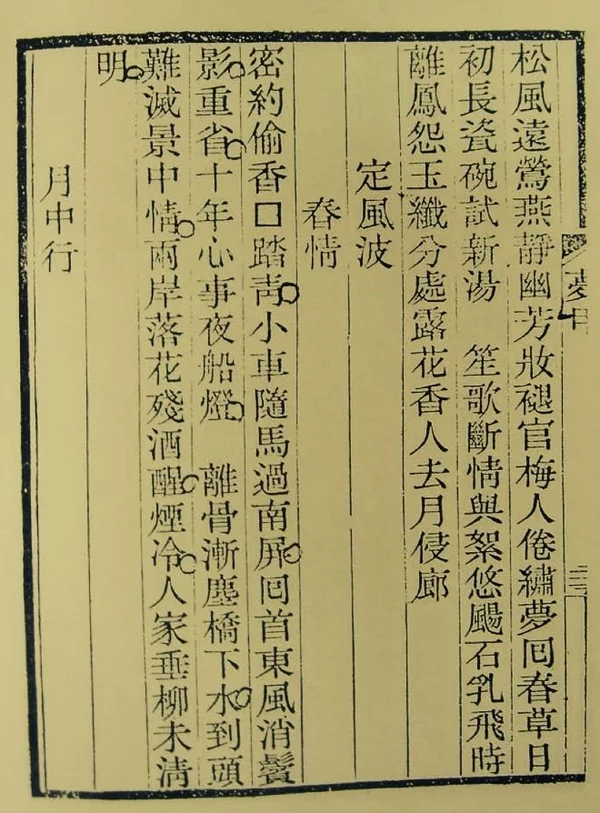 松風遠鶯燕靜幽芳妝褪官梅人倦繡夢囘春草日
初長瓷碗試新湯　笙歌斷情與絮悠颺石乳飛時
離鳳怨玉纖分處露花香人去月侵廊
定風波
春情
密約偷香□踏靑小車隨馬過南屏囘首東風消鬢
影重省十年心事夜船燈　離骨漸塵橋下水到頭
難滅景中情兩岸落花殘酒醒煙冷人家垂柳未清
明
月中行